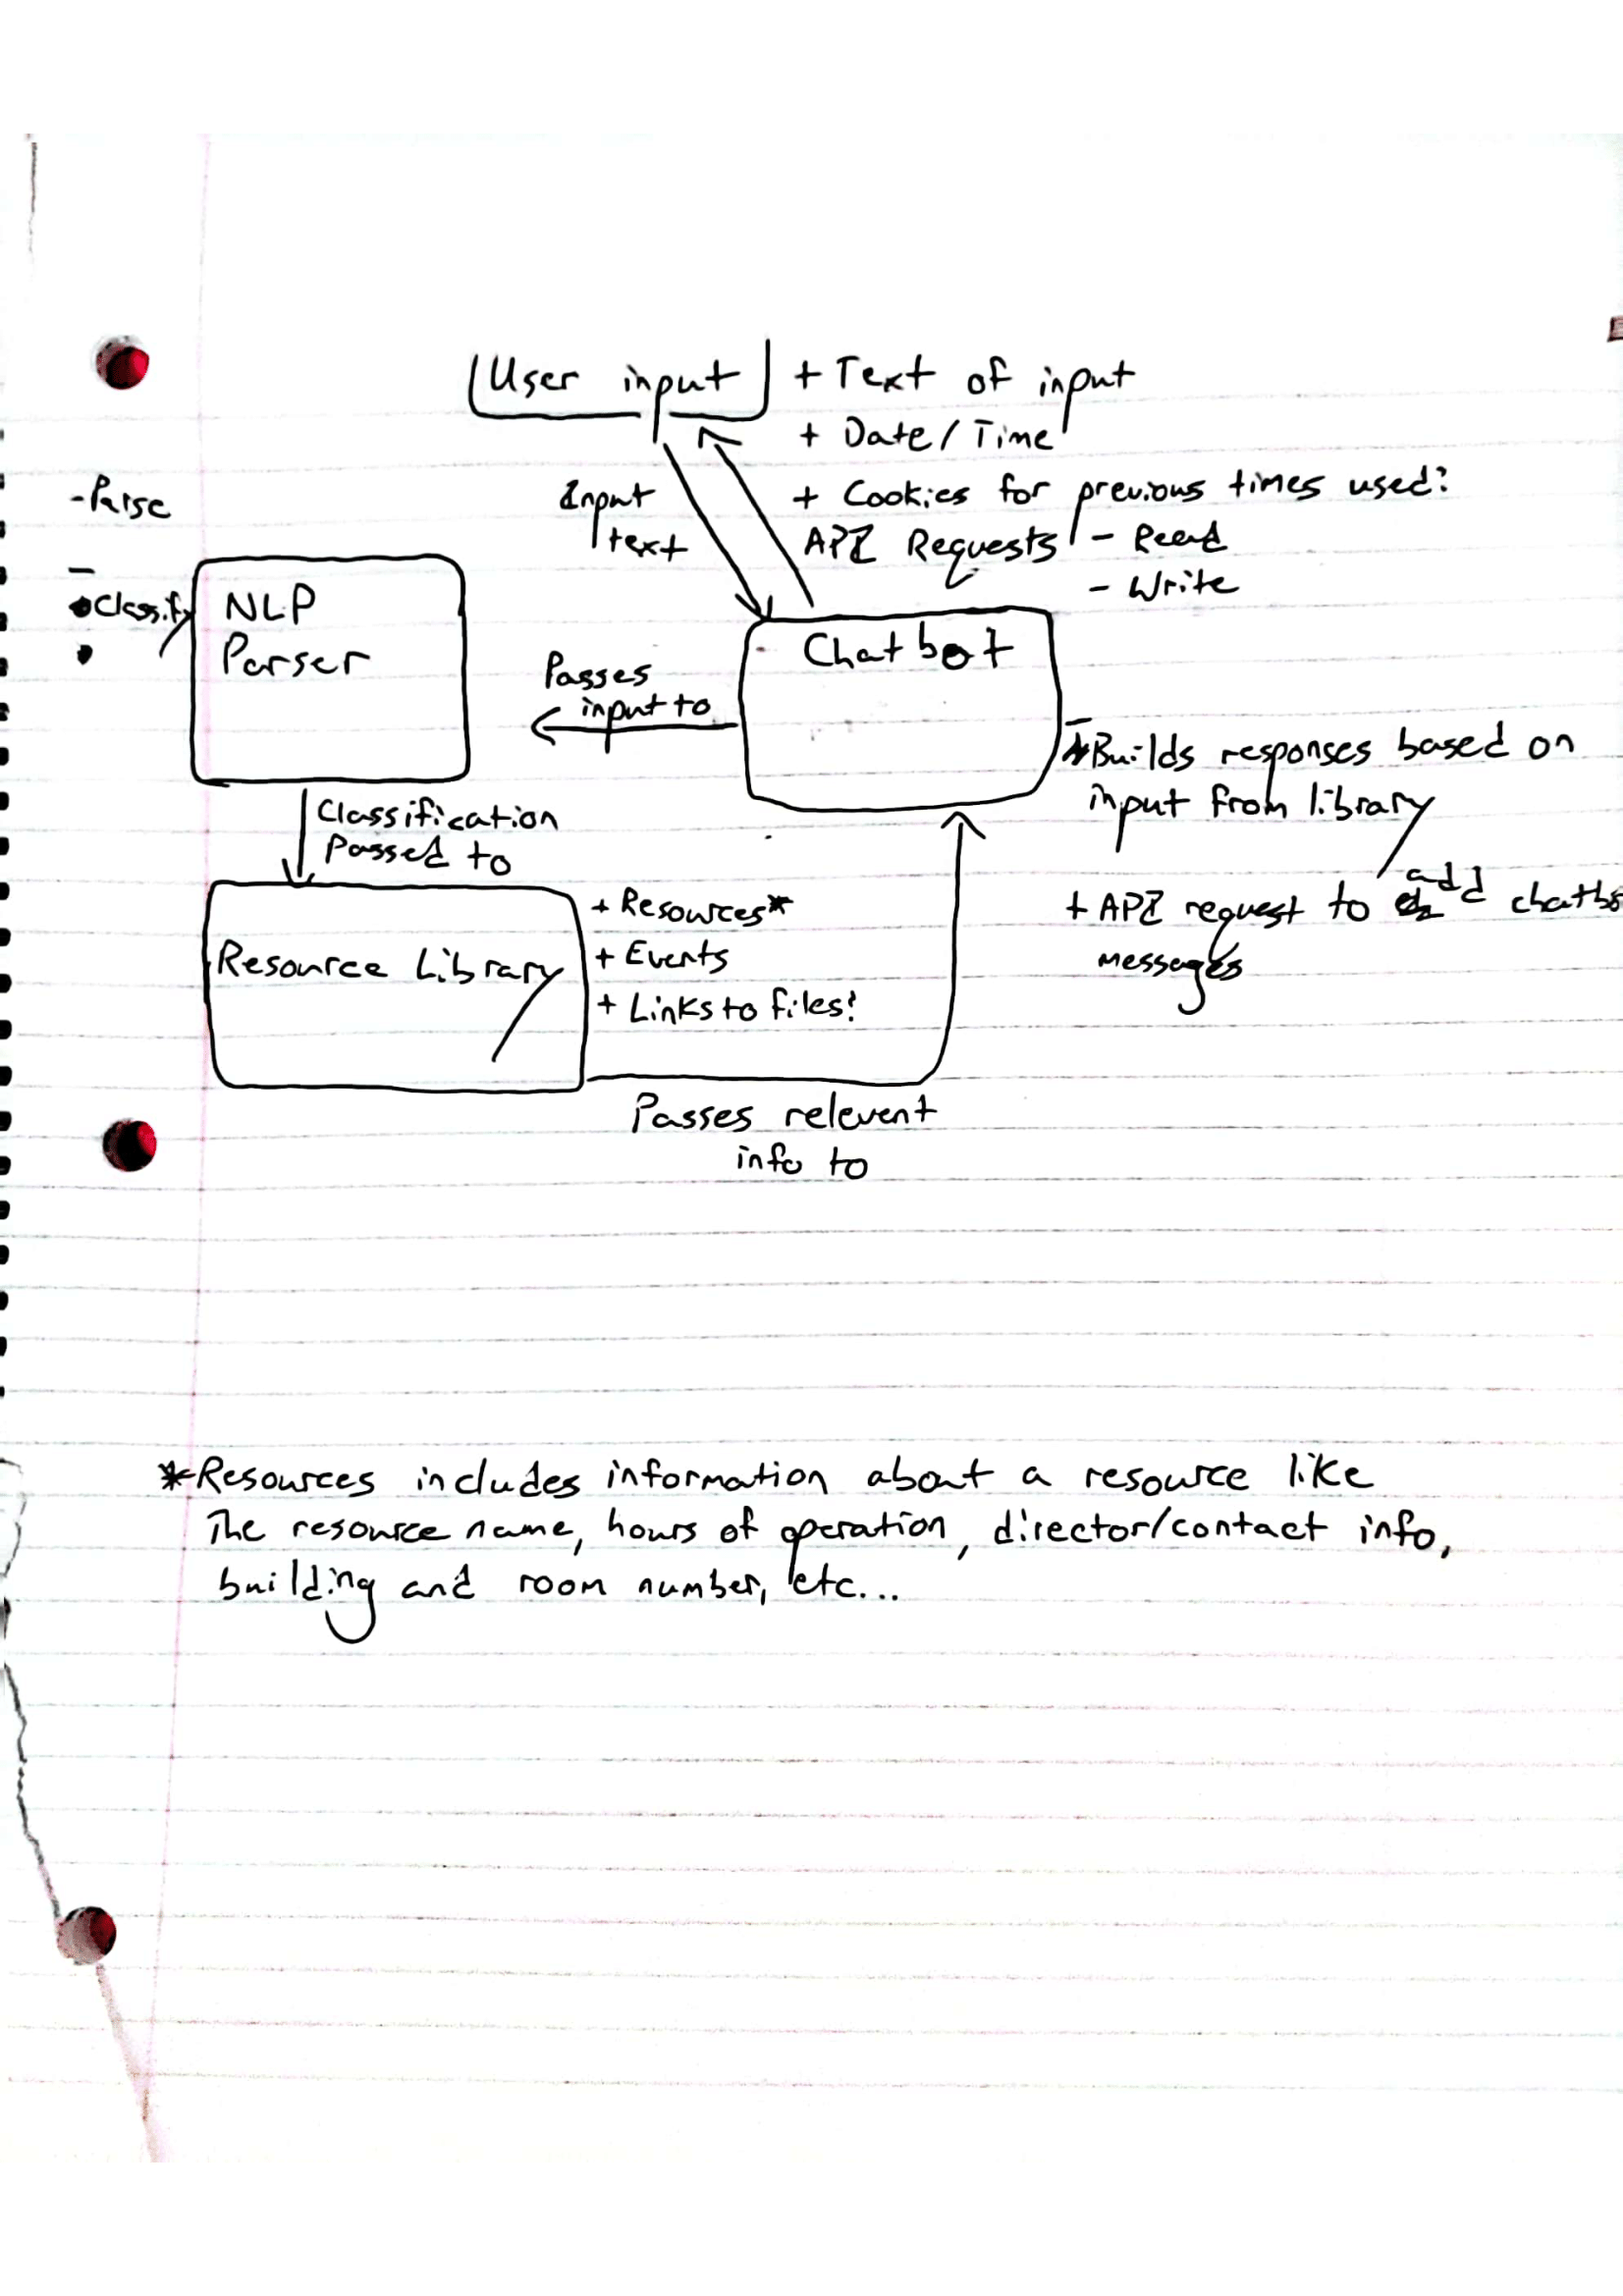 User input
+ Text of input
+ Date/Time
+ Cookies for previous times used?
API Requests - Read
- Write
Input
text
-Parse
-
•Classify
•
NLP
Parser
Chatbot
Passes
input to
Builds responses based on
input from library
+ API request to add chatbo
messages
Classification
Passed to
Resource Library
+ Resources*
+ Events
+ Links to files?
Passes relevent
info to
*Resources includes information about a resource like
The resource name, hours of operation, director/contact info,
building and room number, etc...